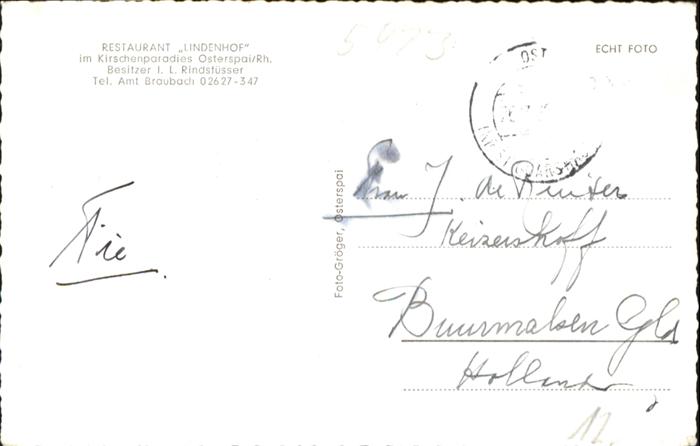 RESTAURANT „LINDENHOF"
im Kirschenparadies Osterspai/Rh.
Besitzer J. L. Rindstüsser
Tel. Amt Braubach 02627-347
ECHT FOTO
Foto-Gröger, Osterspai
Fie
Frau J. de Ruiter
Keizershoff
Buurmalsen Gld
Holland
12